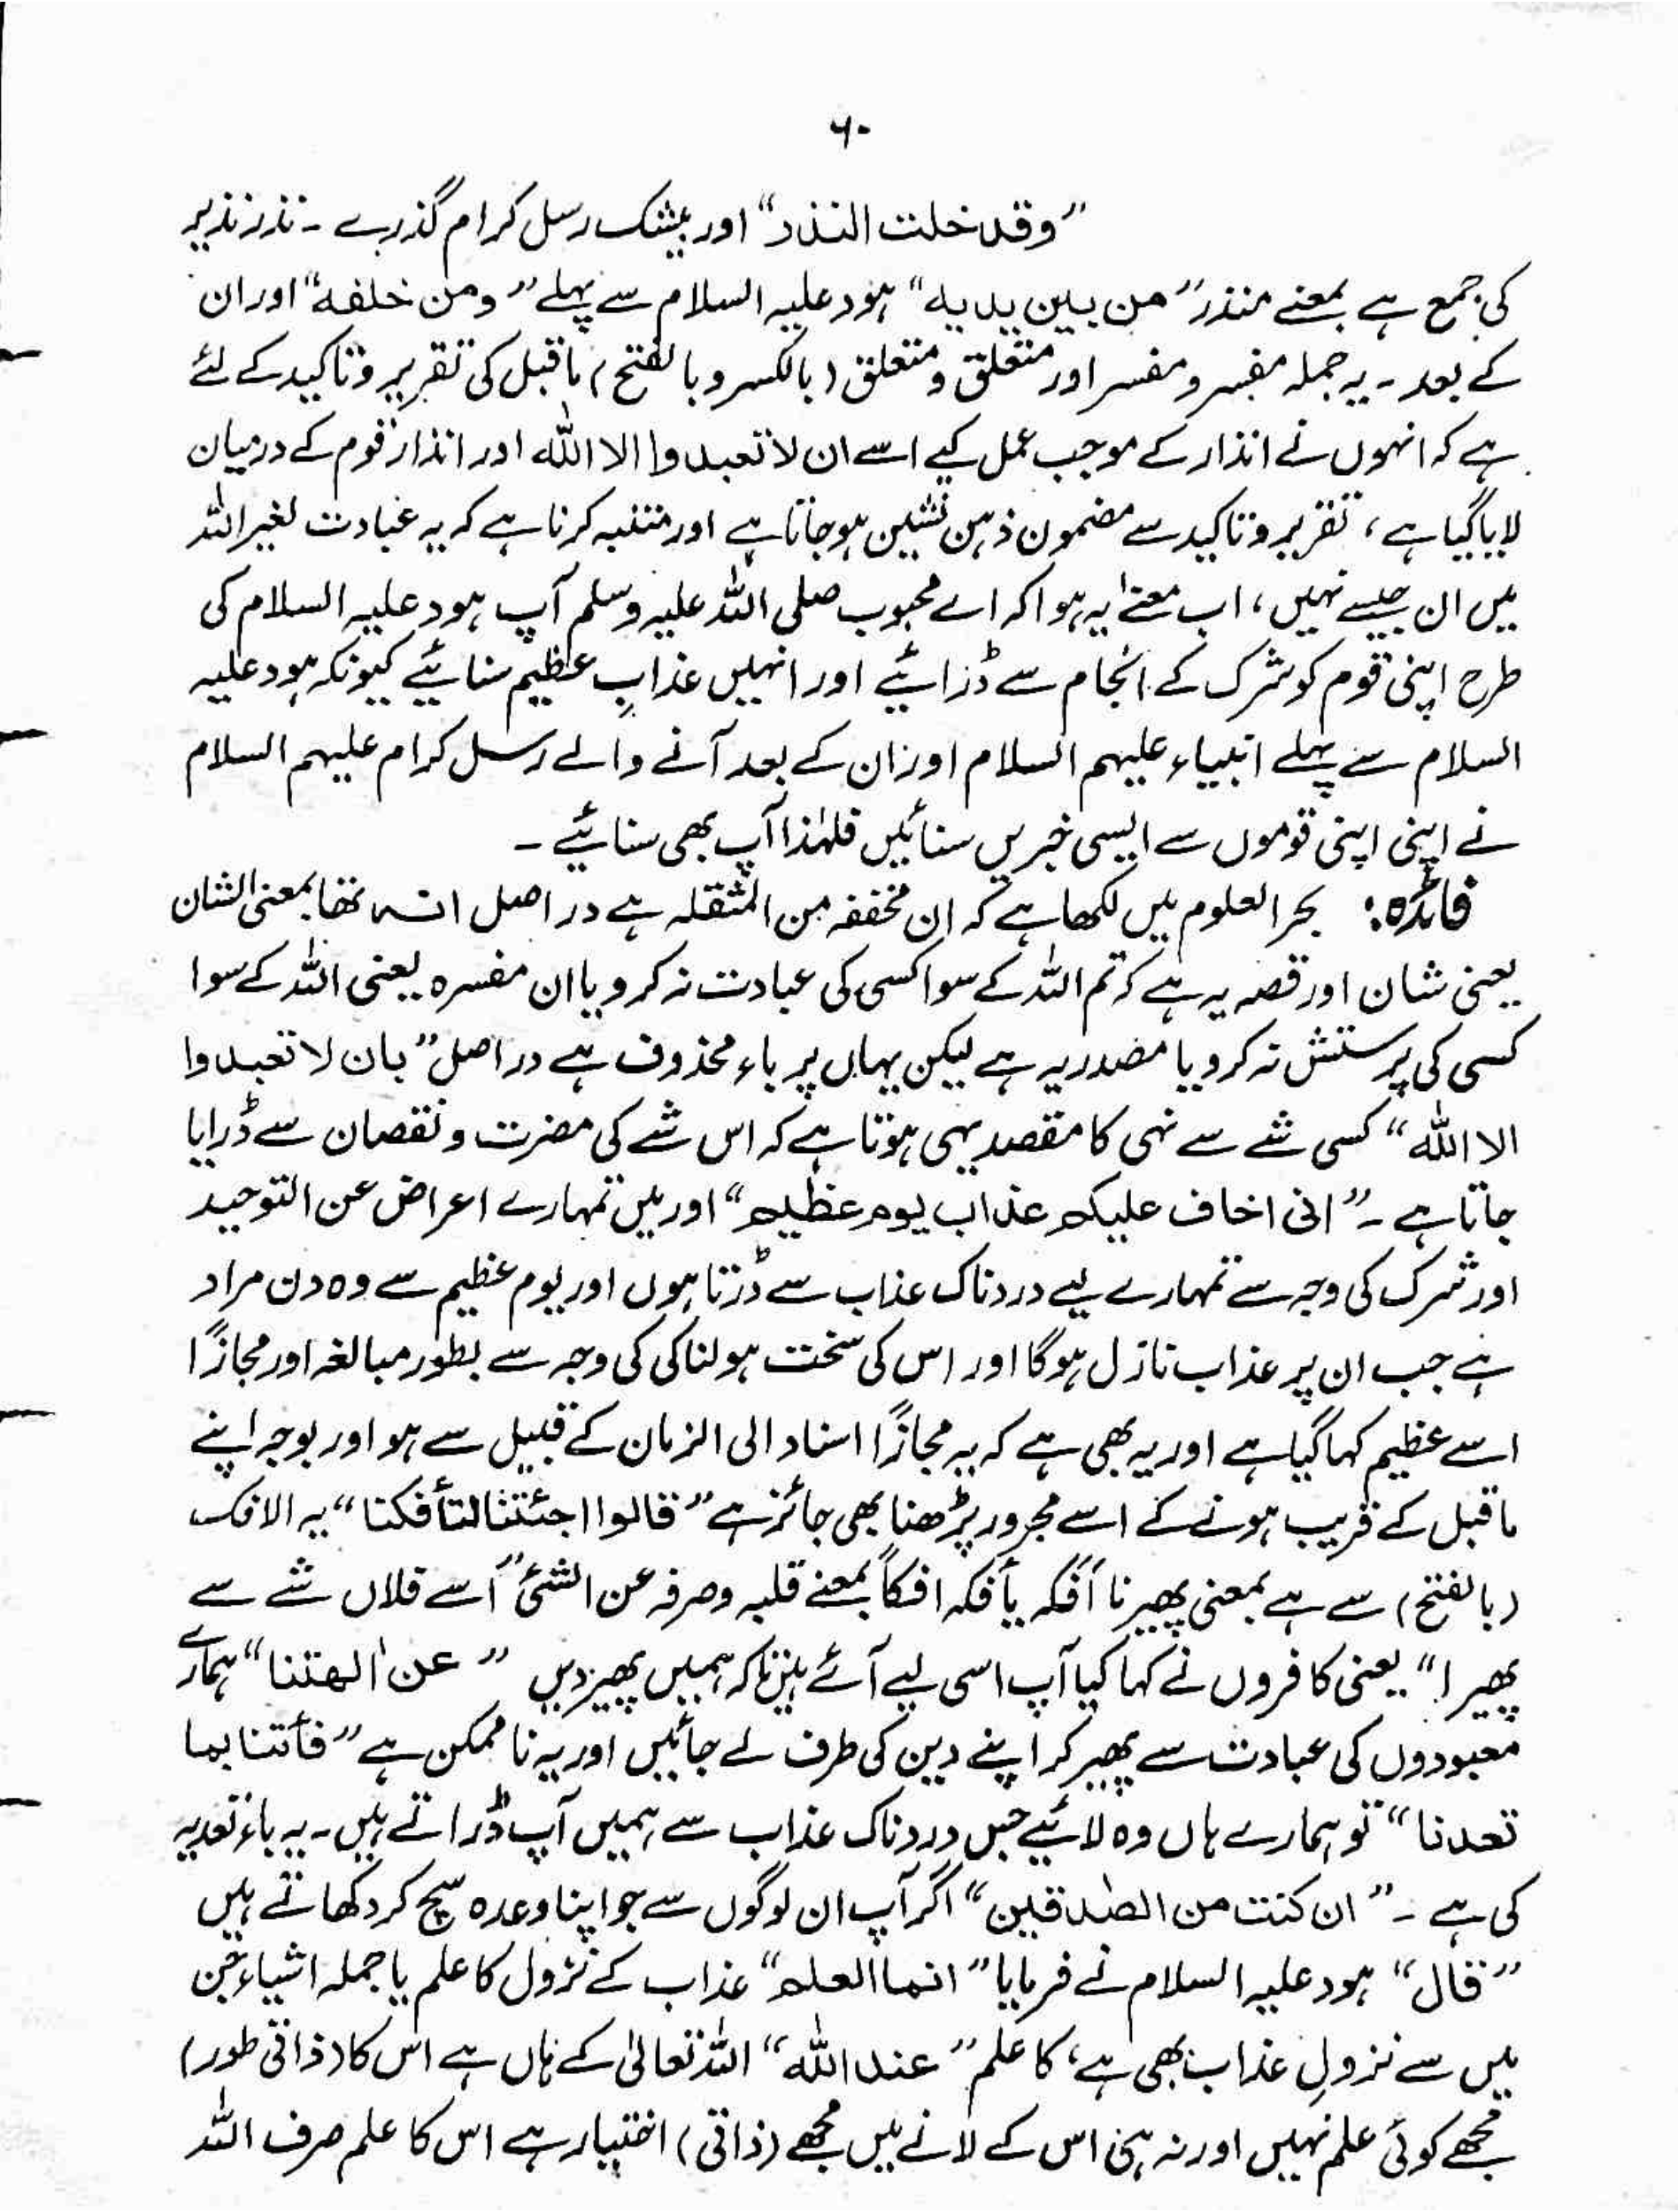 ۶۰
”وقد خلت النذر“ اور بیشک رسل کرام گذرے ۔ نذر نذیر
کی جمع ہے بمعنے منذر ”من بین یدیہ“ ہود علیہ السلام سے پہلے ”ومن خلفہ“ اور ان
کے بعد ۔ یہ جملہ مفسِر و مفسر اور متعلق و متعلق (بالکسر و بالفتح) ماقبل کی تقریر و تاکید کے لئے
ہے کہ انہوں نے انذار کے موجب عمل کیے اسے ان لا تعبدوا الا اللہ اور انذار قوم کے درمیان
لایا گیا ہے ، تقریر و تاکید سے مضمون ذہن نشین ہو جاتا ہے اور متنبہ کرنا ہے کہ یہ عبادت لغیر اللہ
میں ان جیسے نہیں ، اب معنےٰ یہ ہوا کہ اے محبوب صلی اللہ علیہ وسلم آپ ہود علیہ السلام کی
طرح اپنی قوم کو شرک کے انجام سے ڈرائیے اور انہیں عذابِ عظیم سنائیے کیونکہ ہود علیہ
السلام سے پہلے انبیاء علیہم السلام اور ان کے بعد آنے والے رسل کرام علیہم السلام
نے اپنی اپنی قوموں سے ایسی خبریں سنائیں فلہٰذا آپ بھی سنائیے ۔
فائدہ : بحر العلوم میں لکھا ہے کہ ان مخففہ من المثقلہ ہے در اصل انہ تھا بمعنی الشان
یعنی شان اور قصہ یہ ہے کہ تم اللہ کے سوا کسی کی عبادت نہ کرو یا ان مفسرہ یعنی اللہ کے سوا
کسی کی پرستش نہ کرو یا مصدریہ ہے لیکن یہاں پر باء محذوف ہے در اصل ”بان لا تعبدوا
الا اللہ“ کسی شے سے نہی کا مقصد یہی ہوتا ہے کہ اس شے کی مضرت و نقصان سے ڈرایا
جاتا ہے ۔ ”انی اخاف علیکم عذاب یوم عظیم“ اور میں تمہارے اعراض عن التوحید
اور شرک کی وجہ سے تمہارے لیے دردناک عذاب سے ڈرتا ہوں اور یوم عظیم سے وہ دن مراد
ہے جب ان پر عذاب نازل ہوگا اور اس کی سخت ہولناکی کی وجہ سے بطور مبالغہ اور مجازًا
اسے عظیم کہا گیا ہے اور یہ بھی ہے کہ یہ مجازًا اسناد الی الزمان کے قبیل سے ہو اور بوجہ اپنے
ماقبل کے قریب ہونے کے اسے مجرور پڑھنا بھی جائز ہے ”قالوا اجئتنا لتأفکنا“ یہ الافک
(بالفتح) سے ہے بمعنی پھیرنا اَفکہ یأفکہ افکاً بمعنے قلبہ وصرفہ عن الشئ ”اُسے فلاں شے سے
پھیرا“ یعنی کافروں نے کہا کیا آپ اسی لیے آئے ہیں تاکہ ہمیں پھیر دیں ”عن اٰلھتنا“ ہمارے
معبودوں کی عبادت سے پھیر کر اپنے دین کی طرف لے جائیں اور یہ ناممکن ہے ”فأتنا بما
تعدنا“ تو ہمارے ہاں وہ لائیے جس دردناک عذاب سے ہمیں آپ ڈراتے ہیں ۔ یہ باء تعدیہ
کی ہے ۔ ”ان کنت من الصٰدقین“ اگر آپ ان لوگوں سے جو اپنا وعدہ سچ کر دکھاتے ہیں
”قال“ ہود علیہ السلام نے فرمایا ”انما العلم“ عذاب کے نزول کا علم یا جملہ اشیاء جن
میں سے نزولِ عذاب بھی ہے، کا علم ”عند اللہ“ اللہ تعالیٰ کے ہاں ہے اس کا (ذاتی طور)
مجھے کوئی علم نہیں اور نہ ہی اس کے لانے میں مجھے (ذاتی) اختیار ہے اس کا علم صرف اللہ